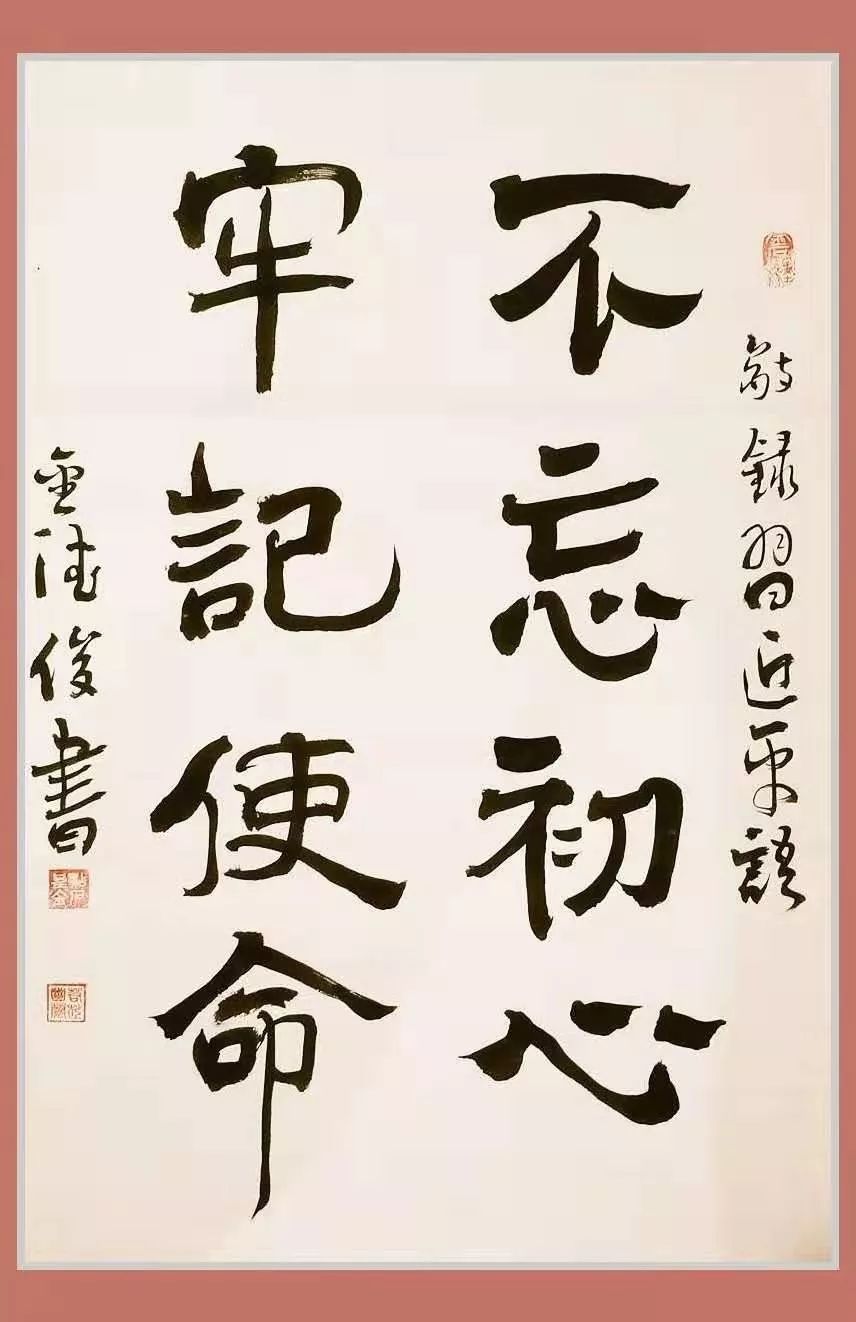 敬録習近平語
不忘初心
牢記使命
俊書